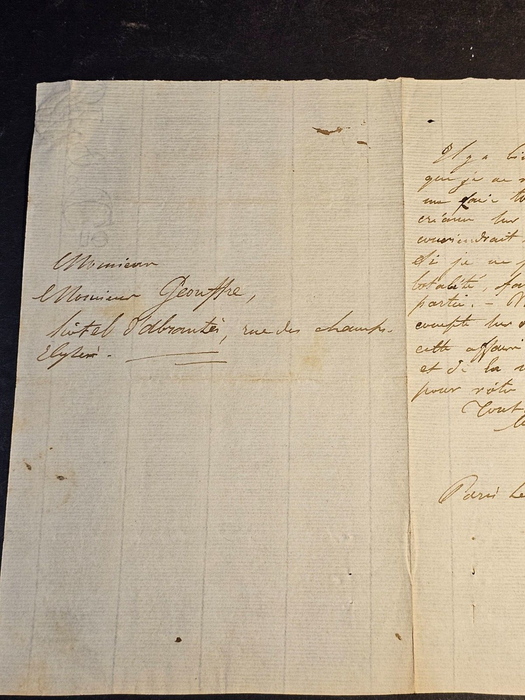 Monsieur
Monsieur Geouffre,
hôtel d'abrantès, rue des champs-
Elysées.
Il y a
que je ne
une
créance sur
conviendrait
Si je ne
totalité,
partie. -
compte sur
cette affaire
et de la
pour votre
Tout
Paris le